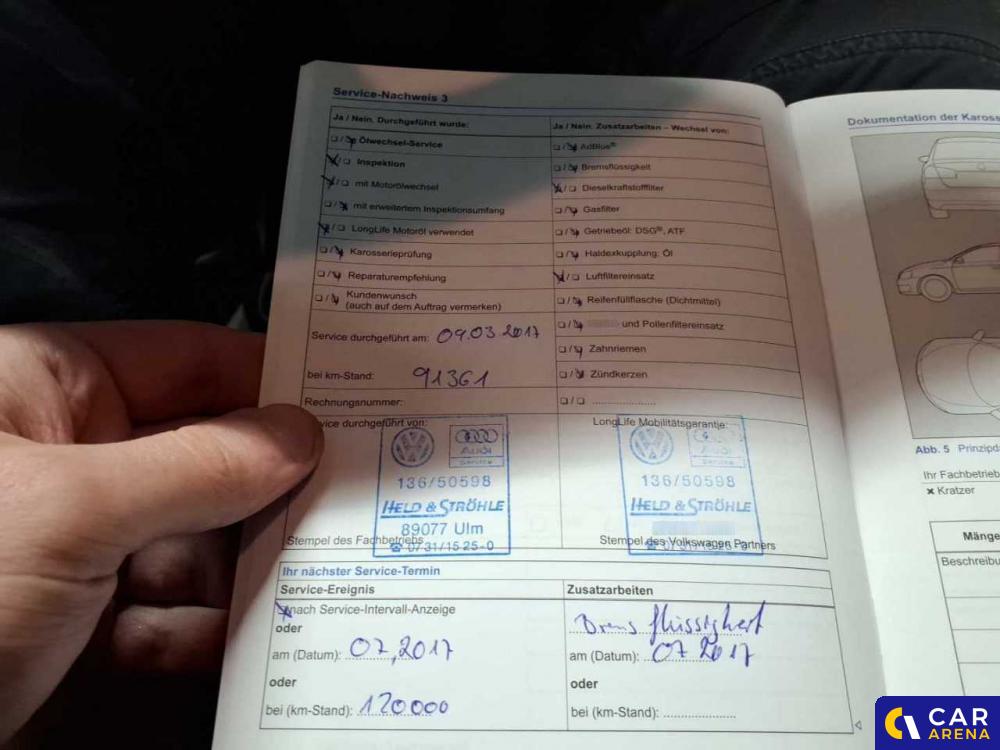 Service-Nachweis 3
Ja / Nein. Durchgeführt wurde:
Ölwechsel-Service
Inspektion
mit Motorölwechsel
mit erweitertem Inspektionsumfang
LongLife Motoröl verwendet
Karosserieprüfung
Reparaturempfehlung
Kundenwunsch
(auch auf dem Auftrag vermerken)
Service durchgeführt am: 09.03.2017
bei km-Stand: 91361
Rechnungsnummer:
Ja / Nein. Zusatzarbeiten – Wechsel von:
AdBlue®
Bremsflüssigkeit
Dieselkraftstofffilter
Gasfilter
Getriebeöl: DSG®, ATF
Haldexkupplung: Öl
Luftfiltereinsatz
Reifenfüllflasche (Dichtmittel)
und Pollenfiltereinsatz
Zahnriemen
Zündkerzen
durchgeführt von:
Audi
Service
136/50598
HELD & STRÖHLE
89077 Ulm
☎ 0731/15 25-0
Stempel des Fachbetriebs
LongLife Mobilitätsgarantie:
Audi
Service
136/50598
HELD & STRÖHLE
☎ 0731/15 25-0
Stempel des Volkswagen Partners
Ihr nächster Service-Termin
Service-Ereignis
nach Service-Intervall-Anzeige
oder
am (Datum): 07,2017
oder
bei (km-Stand): 120000
Zusatzarbeiten
Brems flüssigkeit
am (Datum): 07 2017
oder
bei (km-Stand):
Dokumentation der Kaross
Abb. 5 Prinzipda
Ihr Fachbetrieb
× Kratzer
Mänge
Beschreibu
CAR
ARENA